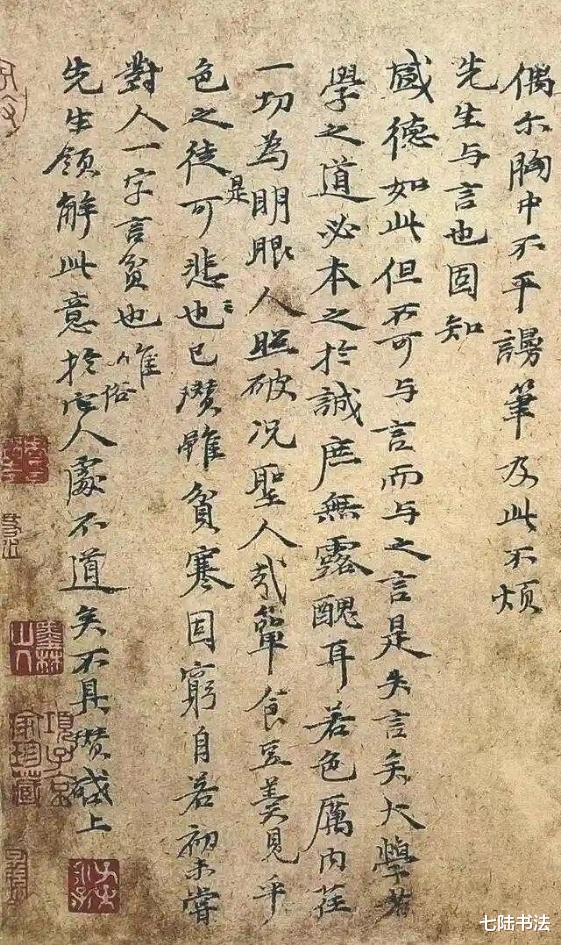 偶尔胸中不平謾筆及此不煩
先生与言也固知
盛德如此但不可与言而与之言是失言矣大學者
學之道必本之於誠庶無露醜耳若色厲内荏
一切為明眼人照破況聖人哉簞食豆羹見乎
色之徒是可悲也已瓚雖貧寒困窮自若初未嘗
對人一字言貧也惟
先生領解此意於俗人處不道矣不具瓚啟上
墨林山人
項子京家珍藏
七陆书法